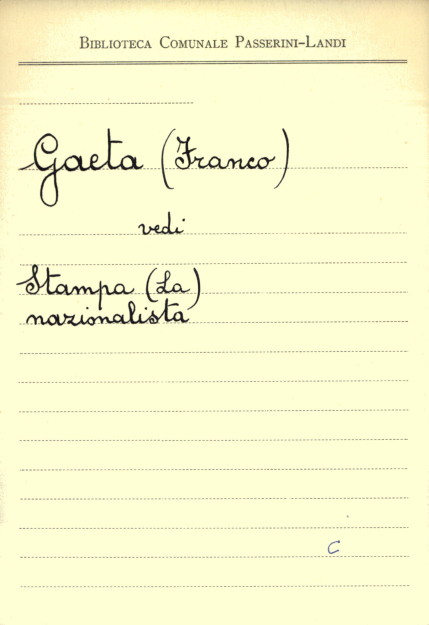 Biblioteca Comunale Passerini-Landi
Gaeta (Franco)
vedi
Stampa (La)
nazionalista
C